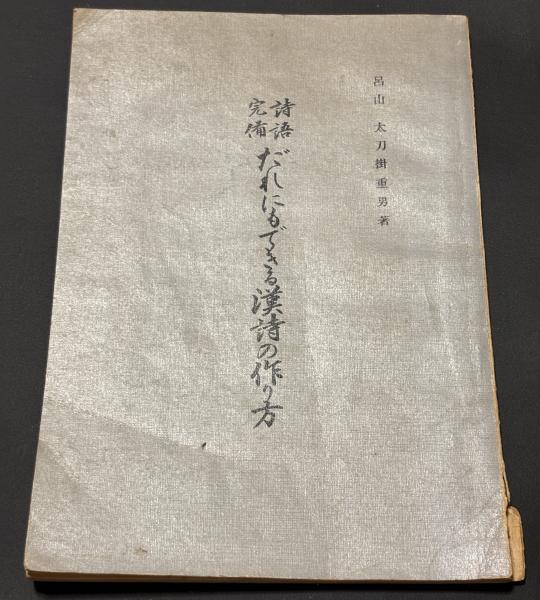 呂山 太刀掛重男著
詩語
完備
だれにもできる漢詩の作り方